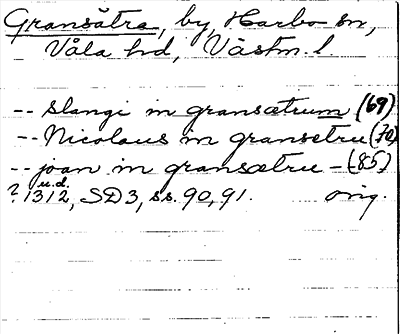 Gransätra, by, Harbo sn,
Våla hd, Västm. l.
-- slangi in gransætrum (69)
-- Nicolaus in gransetru (70)
-- joan in gransætru - (85)
? 1312, u.d. SD3, ss. 90, 91. orig.